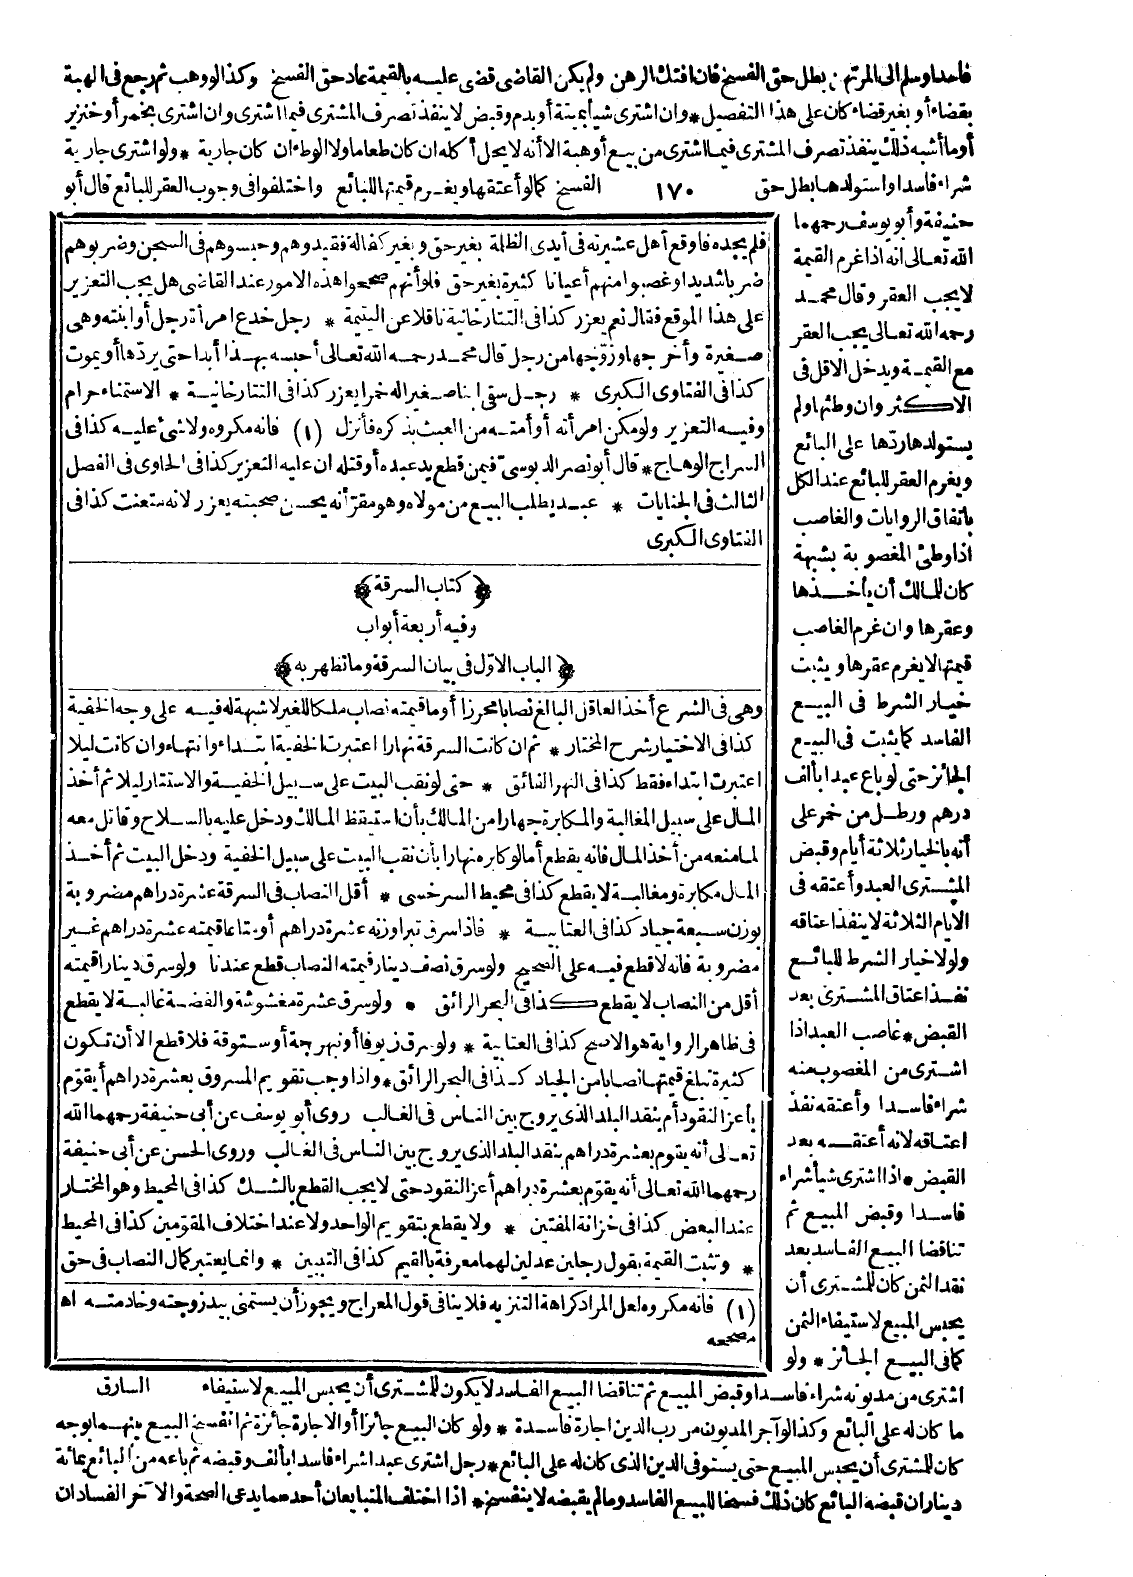 فاسدا وسلم الى المرتهن بطل حق الفسخ فان افتك الرهن ولم يكن القاضى قضى عليه بالقيمة عاد حق الفسخ وكذا لو وهب ثم رجع فى الهبة
بقضاء أو بغير قضاء كان على هذا التفصيل * وان اشترى شيأ بميتة أو بدم وقبض لا ينفذ تصرف المشترى فيما اشترى وان اشترى بخمر أو خنزير
أو ما أشبه ذلك ينفذ تصرف المشترى فيما اشترى من بيع أو هبة الا أنه لا يحل أكله ان كان طعاما ولا الوطء ان كان جارية * ولو اشترى جارية
شراء فاسدا واستولدها بطل حق ١٧٠ الفسخ كما لو أعتقها ويغرم قيمتها للبائع واختلفوا فى وجوب العقر للبائع قال أبو
حنيفة وأبو يوسف رحمهما
الله تعالى انه اذا غرم القيمة
لا يجب العقر وقال محمد
رحمه الله تعالى يجب العقر
مع القيمة ويدخل الاقل فى
الاكثر وان وطئها ولم
يستولدها ردّها على البائع
ويغرم العقر للبائع عند الكل
باتفاق الروايات والغاصب
اذا وطئ المغصوبة بشبهة
كان للمالك أن يأخذها
وعقرها وان غرم الغاصب
قيمتها لا يغرم عقرها ويثبت
خيار الشرط فى البيع
الفاسد كما يثبت فى البيع
الجائز حتى لو باع عبدا بألف
درهم ورطل من خمر على
أنه بالخيار ثلاثة أيام وقبض
المشترى العبد وأعتقه فى
الايام الثلاثة لا ينفذ اعتاقه
ولولا خيار الشرط للبائع
نفذ اعتاق المشترى بعد
القبض * غاصب العبد اذا
اشترى من المغصوب منه
شراء فاسدا وأعتقه نفذ
اعتاقه لانه أعتقه بعد
القبض * اذا اشترى شيأ شراء
فاسدا وقبض المبيع ثم
تناقضا البيع الفاسد بعد
نقد الثمن كان للمشترى أن
يحبس المبيع لاستيفاء الثمن
كما فى البيع الجائز * ولو
اشترى من مديونه شراء فاسدا وقبض المبيع ثم تناقضا البيع الفاسد لا يكون للمشترى أن يحبس المبيع لاستيفاء
ما كان له على البائع وكذا لو آجر المديون من رب الدين اجارة فاسدة * ولو كان البيع جائزا أو الاجارة جائزة ثم انفسخ البيع بينهما بوجه
كان للمشترى أن يحبس المبيع حتى يستوفى الدين الذى كان له على البائع * رجل اشترى عبدا شراء فاسدا بألف وقبضه ثم باعه من البائع بمائة
دينار ان قبضه البائع كان ذلك فسخا للبيع الفاسد وما لم يقبضه لا ينفسخ * اذا اختلف المتبايعان أحدهما يدعى الصحة والآخر الفساد ان
فلم يجده فاوقع أهل عشيرته فى أيدى الظلمة بغير حق وبغير كفالة فقيدوهم وحبسوهم فى السجن وضربوهم
ضربا شديدا وغصبوا منهم أعيانا كثيرة بغير حق فلو أنهم صححوا هذه الامور عند القاضى هل يجب التعزير
على هذا الموقع فقال نعم يعزر كذا فى التتارخانية ناقلا عن اليتيمة * رجل خدع امرأة رجل أو ابنته وهى
صغيرة وأخرجها وزوّجها من رجل قال محمد رحمه الله تعالى أحبسه بهذا أبدا حتى يردّها أو يموت
كذا فى الفتاوى الكبرى * رجل سقى ابنا صغيرا له خمرا يعزر كذا فى التتارخانية * الاستمناء حرام
وفيه التعزير ولو مكن امرأته أو أمته من العبث بذكره فأنزل (١) فانه مكروه ولا شئ عليه كذا فى
السراج الوهاج * قال أبو نصر الدبوسىّ فيمن قطع يد عبده أو قتله ان عليه التعزير كذا فى الحاوى فى الفصل
الثالث فى الجنايات * عبد يطلب البيع من مولاه وهو مقرّ أنه يحسن صحبته يعزر لانه متعنت كذا فى
الفتاوى الكبرى
﴿كتاب السرقة﴾
وفيه أربعة أبواب
﴿الباب الاوّل فى بيان السرقة وما تظهر به﴾
وهى فى الشرع أخذ العاقل البالغ نصابا محرزا أو ما قيمته نصاب ملكا للغير لا شبهة له فيه على وجه الخفية
كذا فى الاختيار شرح المختار * ثم ان كانت السرقة نهارا اعتبرت الخفية ابتداء وانتهاء وان كانت ليلا
اعتبرت ابتداء فقط كذا فى النهر الفائق * حتى لو نقب البيت على سبيل الخفية والاستتار ليلا ثم أخذ
المال على سبيل المغالبة والمكابرة جهارا من المالك بأن استيقظ المالك ودخل عليه بالسلاح وقاتل معه
لما منعه من أخذ المال فانه يقطع أما لو كابره نهارا بأن نقب البيت على سبيل الخفية ودخل البيت ثم أخذ
المال مكابرة ومغالبة لا يقطع كذا فى محيط السرخسى * أقل النصاب فى السرقة عشرة دراهم مضروبة
بوزن سبعة جياد كذا فى العتابية * فاذا سرق تبرا وزنه عشرة دراهم أو متاعا قيمته عشرة دراهم غير
مضروبة فانه لا قطع فيه على الصحيح ولو سرق نصف دينار قيمته النصاب قطع عندنا ولو سرق دينارا قيمته
أقل من النصاب لا يقطع كذا فى البحر الرائق * ولو سرق عشرة مغشوشة والفضة غالبة لا يقطع
فى ظاهر الرواية هو الاصح كذا فى العتابية * ولو سرق زيوفا أو نبهرجة أو ستوقة فلا قطع الا أن تكون
كثيرة تبلغ قيمتها نصابا من الجياد كذا فى البحر الرائق * واذا وجب تقويم المسروق بعشرة دراهم أيقوّم
بأعز النقود أم بنقد البلد الذى يروج بين الناس فى الغالب روى أبو يوسف عن أبى حنيفة رحمهما الله
تعالى أنه يقوم بعشرة دراهم بنقد البلد الذى يروج بين الناس فى الغالب وروى الحسن عن أبى حنيفة
رحمهما الله تعالى أنه يقوّم بعشرة دراهم أعز النقود حتى لا يجب القطع بالشك كذا فى المحيط وهو المختار
عند البعض كذا فى خزانة المفتين * ولا يقطع بتقويم الواحد ولا عند اختلاف المقوّمين كذا فى المحيط
* وتثبت القيمة بقول رجلين عدلين لهما معرفة بالقيم كذا فى التبيين * وانما يعتبر كمال النصاب فى حق
(١) فانه مكروه لعل المراد كراهة التنزيه فلا ينافى قول المعراج ويجوز أن يستمنى بيد زوجته وخادمته اه
مصححه
السارق